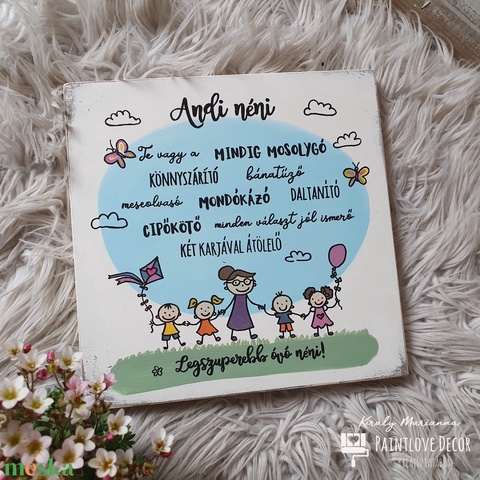 Andi néni
Te vagy a MINDIG MOSOLYGÓ
KÖNNYSZÁRÍTÓ bánatűző
meseolvasó MONDÓKÁZÓ DALTANÍTÓ
CIPŐKÖTŐ minden választ jól ismerő
KÉT KARJÁVAL ÁTÖLELŐ
Legszuperebb óvó néni!
Király Marianna
PAINTLOVE DECOR
meska